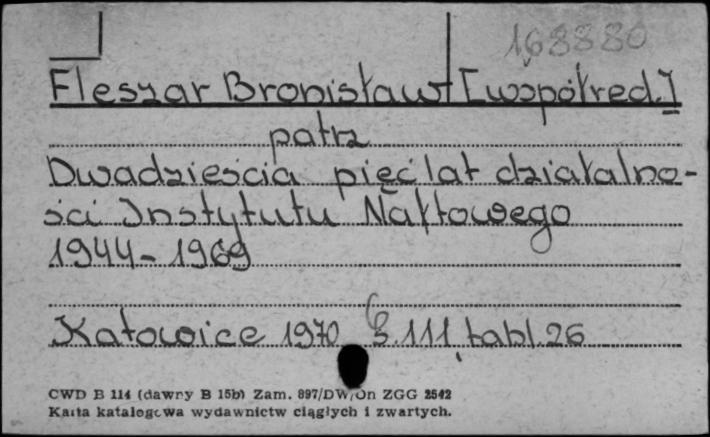 168880
Fleszar Bronisław [współred.]
patrz
Dwadzieścia pięć lat działalno-
ści Instytutu Naftowego
1944 - 1969
Katowice 1970 s. 111, tabl. 26
CWD B 114 (dawny B 15b) Zam. 897/DW/On ZGG 2542
Karta katalogowa wydawnictw ciągłych i zwartych.